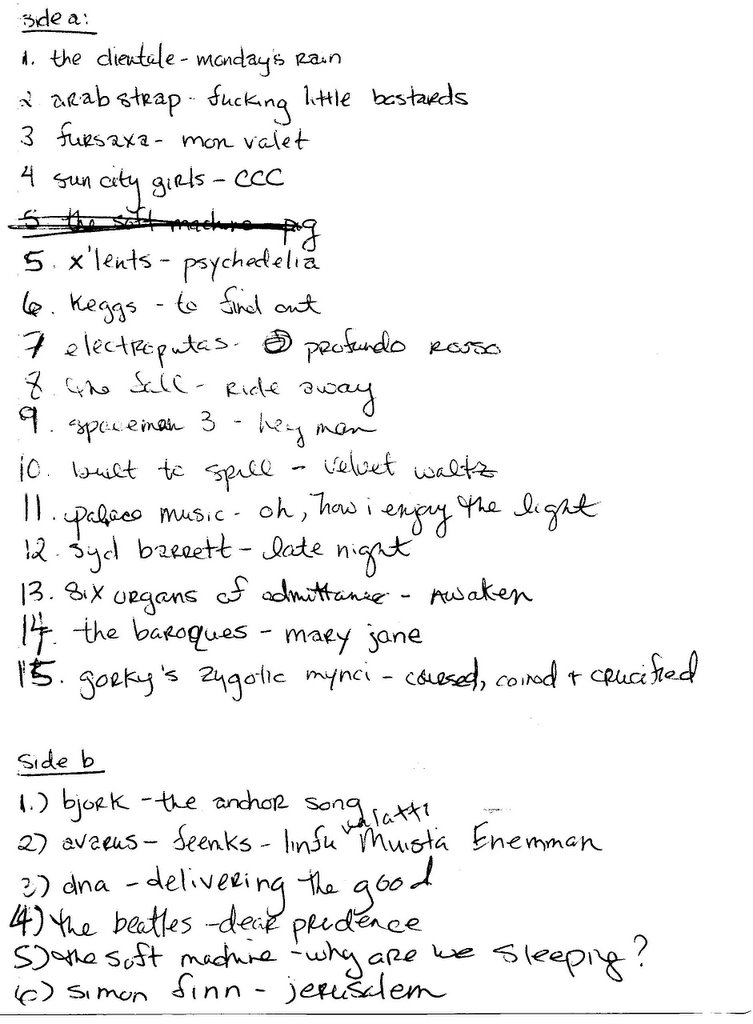 side a:
1. the clientale - monday's rain
2 arab strap - fucking little bastards
3 fursaxa - mon valet
4 sun city girls - CCC
5 the soft machine - pig
5. x'lents - psychedelia
6. keggs - to find out
7 electroputas - profundo rosso
8 the fall - ride away
9. spaceman 3 - hey man
10. built to spill - velvet waltz
11. palace music - oh, how i enjoy the light
12. syd barrett - late night
13. six organs of admittance - awaken
14. the baroques - mary jane
15. gorky's zygotic mynci - cursed, coined + crucified
side b
1.) bjork - the anchor song
2) avarus - feenks - linfu valatti Muista Enemman
3) dna - delivering the good
4) the beatles - dear prudence
5) the soft machine - why are we sleeping?
6) simon finn - jerusalem